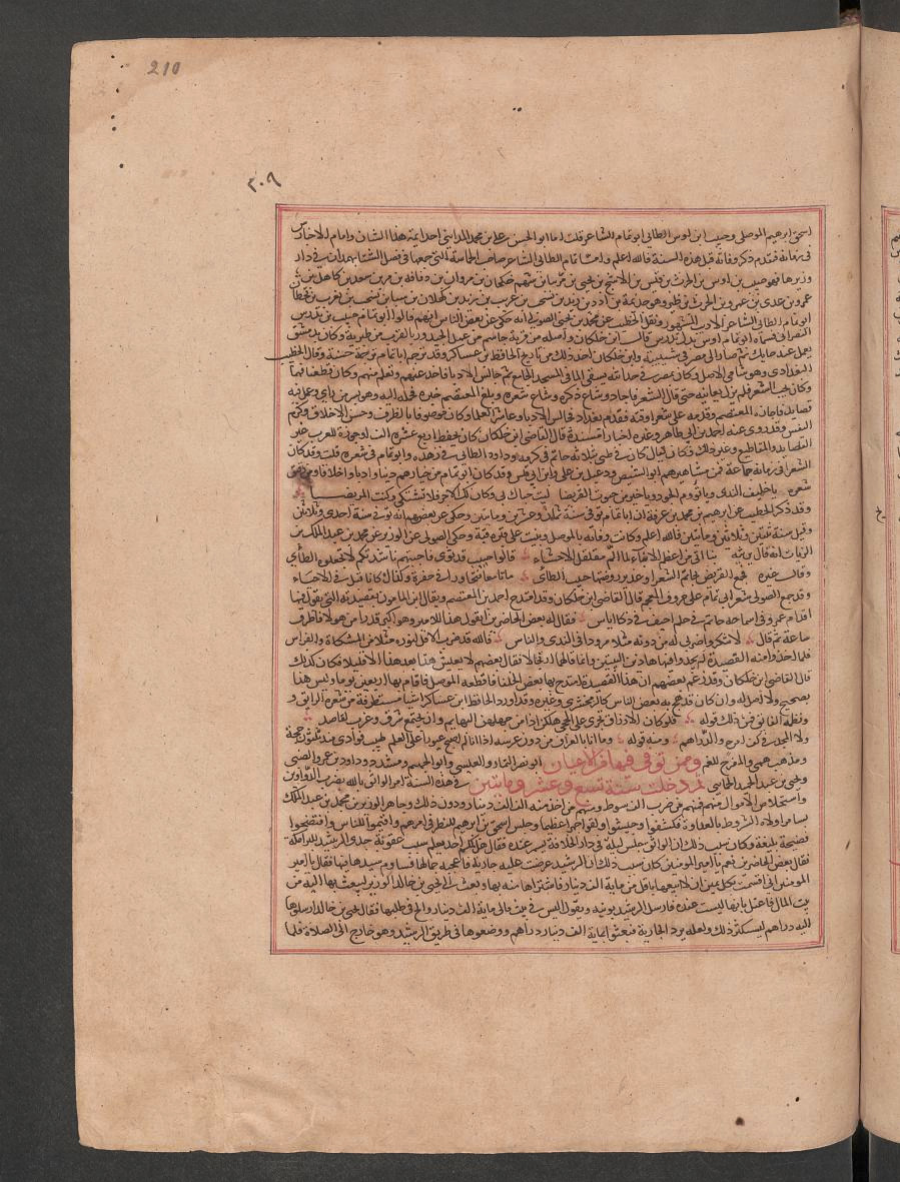 210
٢٠٩
اسحق ابرهيم الموصلي وحبيب ابن اوس الطائي ابو تمام الشاعر قلت اما ابو الحسن علي بن محمد المدايني احد ايمة هذا الشان وامام الاخباريين
في زمانه فتقدم ذكر وفاته قبل هذه السنة فالله اعلم واما ابو تمام الطائي الشاعر صاحب الحماسة التي جمعها في فصل الشتا بهمدان في دار
وزيرها فهو حبيب بن اوس بن الحرث بن قيس بن الاشج بن يحيى بن مزينا بن سهم بن خلجان بن مروان بن دفافة بن مر بن سعد بن كاهل بن
عمرو بن عدي بن عمرو بن الحرث بن طيء وهو جلهمة بن ادد بن زيد بن يشجب بن عريب بن زيد بن كهلان بن سبا بن يشجب بن يعرب بن قحطان
ابو تمام الطائي الشاعر الاديب المشهور ونقل الخطيب عن محمد بن يحيى الصولي انه حكى عن بعض الناس انهم قالوا ابو تمام حبيب بن تدرس
النصراني فسماه ابو تمام اوس بدل تدرس قال ابن خلكان واصله من قرية جاسم من عمل الجيدور بالقرب من طبرية وكان بدمشق
يعمل عند حايك ثم صار الى مصر في شبيبته وابن خلكان اخذ ذلك من تاريخ الحافظ بن عساكر وقد ترجم ابا تمام ترجمة حسنة وقال الخطيب
البغدادي وهو شامي الاصل وكان بمصر في حداثته يسقي الما في المسجد الجامع ثم جالس الادبا فاخذ عنهم وتعلم منهم وكان فطنا فهما
وكان يحب الشعر فلم يزل يعانيه حتى قال الشعر فاجاد وشاع ذكره وسار شعره وبلغ المعتصم خبره فحمله اليه وهو بسر من راي وعمل فيه
قصايد فاجازه المعتصم وقدمه على شعرا وقته فقدم بغداد فجالس الادبا وعاشر العلما وكان موصوفا بالظرف وحسن الاخلاق وكرم
النفس وقد روى عنه احمد بن ابي طاهر وغيره اخبارا مسندة قال القاضي ابن خلكان كان يحفظ اربع عشرة الف ارجوزة للعرب غير
القصايد والمقاطيع وغير ذلك وكان يقال كان في طي ثلاثة حاتم في كرمه وداود الطائي في زهده وابو تمام في شعره قلت وقد كان
الشعرا في زمانه جماعة فمن مشاهيرهم ابو الشيص ودعبل بن علي وابن ابي قيس وقد كان ابو تمام من خيارهم دينا وادبا واخلاقا ومن رقيق
شعره يا حليف الندى ويا توءم الجود ويا خير من حبوت القريضا ليت حماك بي وكان لك الاجر فلا تشتكي وكنت المريضا
وقد ذكر الخطيب عن ابرهيم بن محمد بن عرفة ان ابا تمام توفي في سنة ثمان وعشرين ومايتين وحكي عن بعضهم انه توفي سنة احدى وثلاثين
وقيل سنة ثنتين وثلاثين ومايتين فالله اعلم وكانت وفاته بالموصل وبنيت على قبره قبة وحكى الصولي عن الوزير محمد بن عبد الملك بن
الزيات انه قال يرثيه نبا اتى من اعظم الانباء لما الم مقلقل الاحشاء قالوا حبيب قد ثوى فاجبتهم ناشدتكم لا تجعلوه الطائي
وقال غيره فجع القريض بخاتم الشعرا وغدير روضتها حبيب الطائي ماتا معا فتجاورا في حفرة وكذاك كانا قبل في الاحياء
وقد جمع الصولي شعر ابي تمام على حروف المعجم قال القاضي ابن خلكان وقد امتدح احمد بن المعتصم ويقال ابن المامون بقصيدته التي يقول فيها
اقدام عمرو في سماحة حاتم في حلم احنف في ذكا اياس فقال له بعض الحاضرين اتقول هذا للامير وهو اكبر قدرا من هولا فاطرق
ساعة ثم قال لا تنكروا ضربي له من دونه مثلا شرودا في الندى والباس فالله قد ضرب الاقل لنوره مثلا من المشكاة والنبراس
فلما اخذوا منه القصيدة لم يجدوا فيها هاذين البيتين وانما قالهما ارتجالا فقال بعضهم لا يعيش هذا بعد هذا الا قليلا فكان كذلك
قال القاضي ابن خلكان وقد زعم بعضهم ان هذه القصيدة امتدح بها بعض الخلفا فاقطعه الموصل فاقام بها اربعين يوما وليس هذا
بصحيح ولا اصل له وان كان قد لهج به بعض الناس كالزمخشري وغيره وقد اورد الحافظ ابن عساكر اشيا مستظرفة من شعره الرايق و
ونظمه الفايق فمن ذلك قوله ولو كانت الارزاق تجري على الحجى هلكن اذا من جهلهن البهايم ولم يجتمع شرق وغرب لقاصد
ولا المجد في كف امرء والدراهم ومنه قوله وما انا بالغيران من دون عرسه اذا انا لم اصبح غيورا على العلم طبيب فوادي مذ ثلثون حجة
ومذهب همي والمفرج للغم ومن توفي فيها من الاعيان ابو نصر التمار والعيشي وابو الجهم ومسدد وداود بن عمرو الضبي
ويحيى بن عبد الحميد الحماني ثم دخلت سنة تسع وعشرين ومايتين في هذه السنة امر الواثق بالله بضرب الدواوين
واستخلاص الاموال منهم فمنهم من ضرب الف سوط ومنهم من اخذ منه الف الف دينار ودون ذلك وجاهر الوزير بن محمد بن عبد الملك
بسامر اولاة الشروط بالعداوة فكشفوا وحبسوا ولقوا جهدا عظيما وجلس اسحق بن ابرهيم للنظر في امرهم واقيموا للناس وافتضحوا
فضيحة بليغة وكان سبب ذلك ان الواثق جلس ليلة في دار الخلافة يسمر عنده فقال هل فيكم احد يعلم سبب عقوبة جدي الرشيد للبرامكة
فقال بعض الحاضرين نعم يا امير المومنين كان سبب ذلك ان الرشيد عرضت عليه جارية فاعجبه جمالها فساوم سيدها فيها فقال يا امير
المومنين اني اقسمت بكل يمين ان لا ابيعها باقل من ماية الف دينار فاشتراها منه بها وبعث الى يحيى بن خالد الوزير ليبعث بها اليه من
بيت المال فاعتل بانها ليست عنده فارسل الرشيد يونبه ويقول اليس في بيت مالي ماية الف دينار والح في طلبها فقال يحيى بن خالد ارسلوها
اليه دراهم ليستكثر ذلك ولعله يرد الجارية فبعثوا بماية الف دينار دراهم ووضعوها في طريق الرشيد وهو خارج الى الصلاة فلما